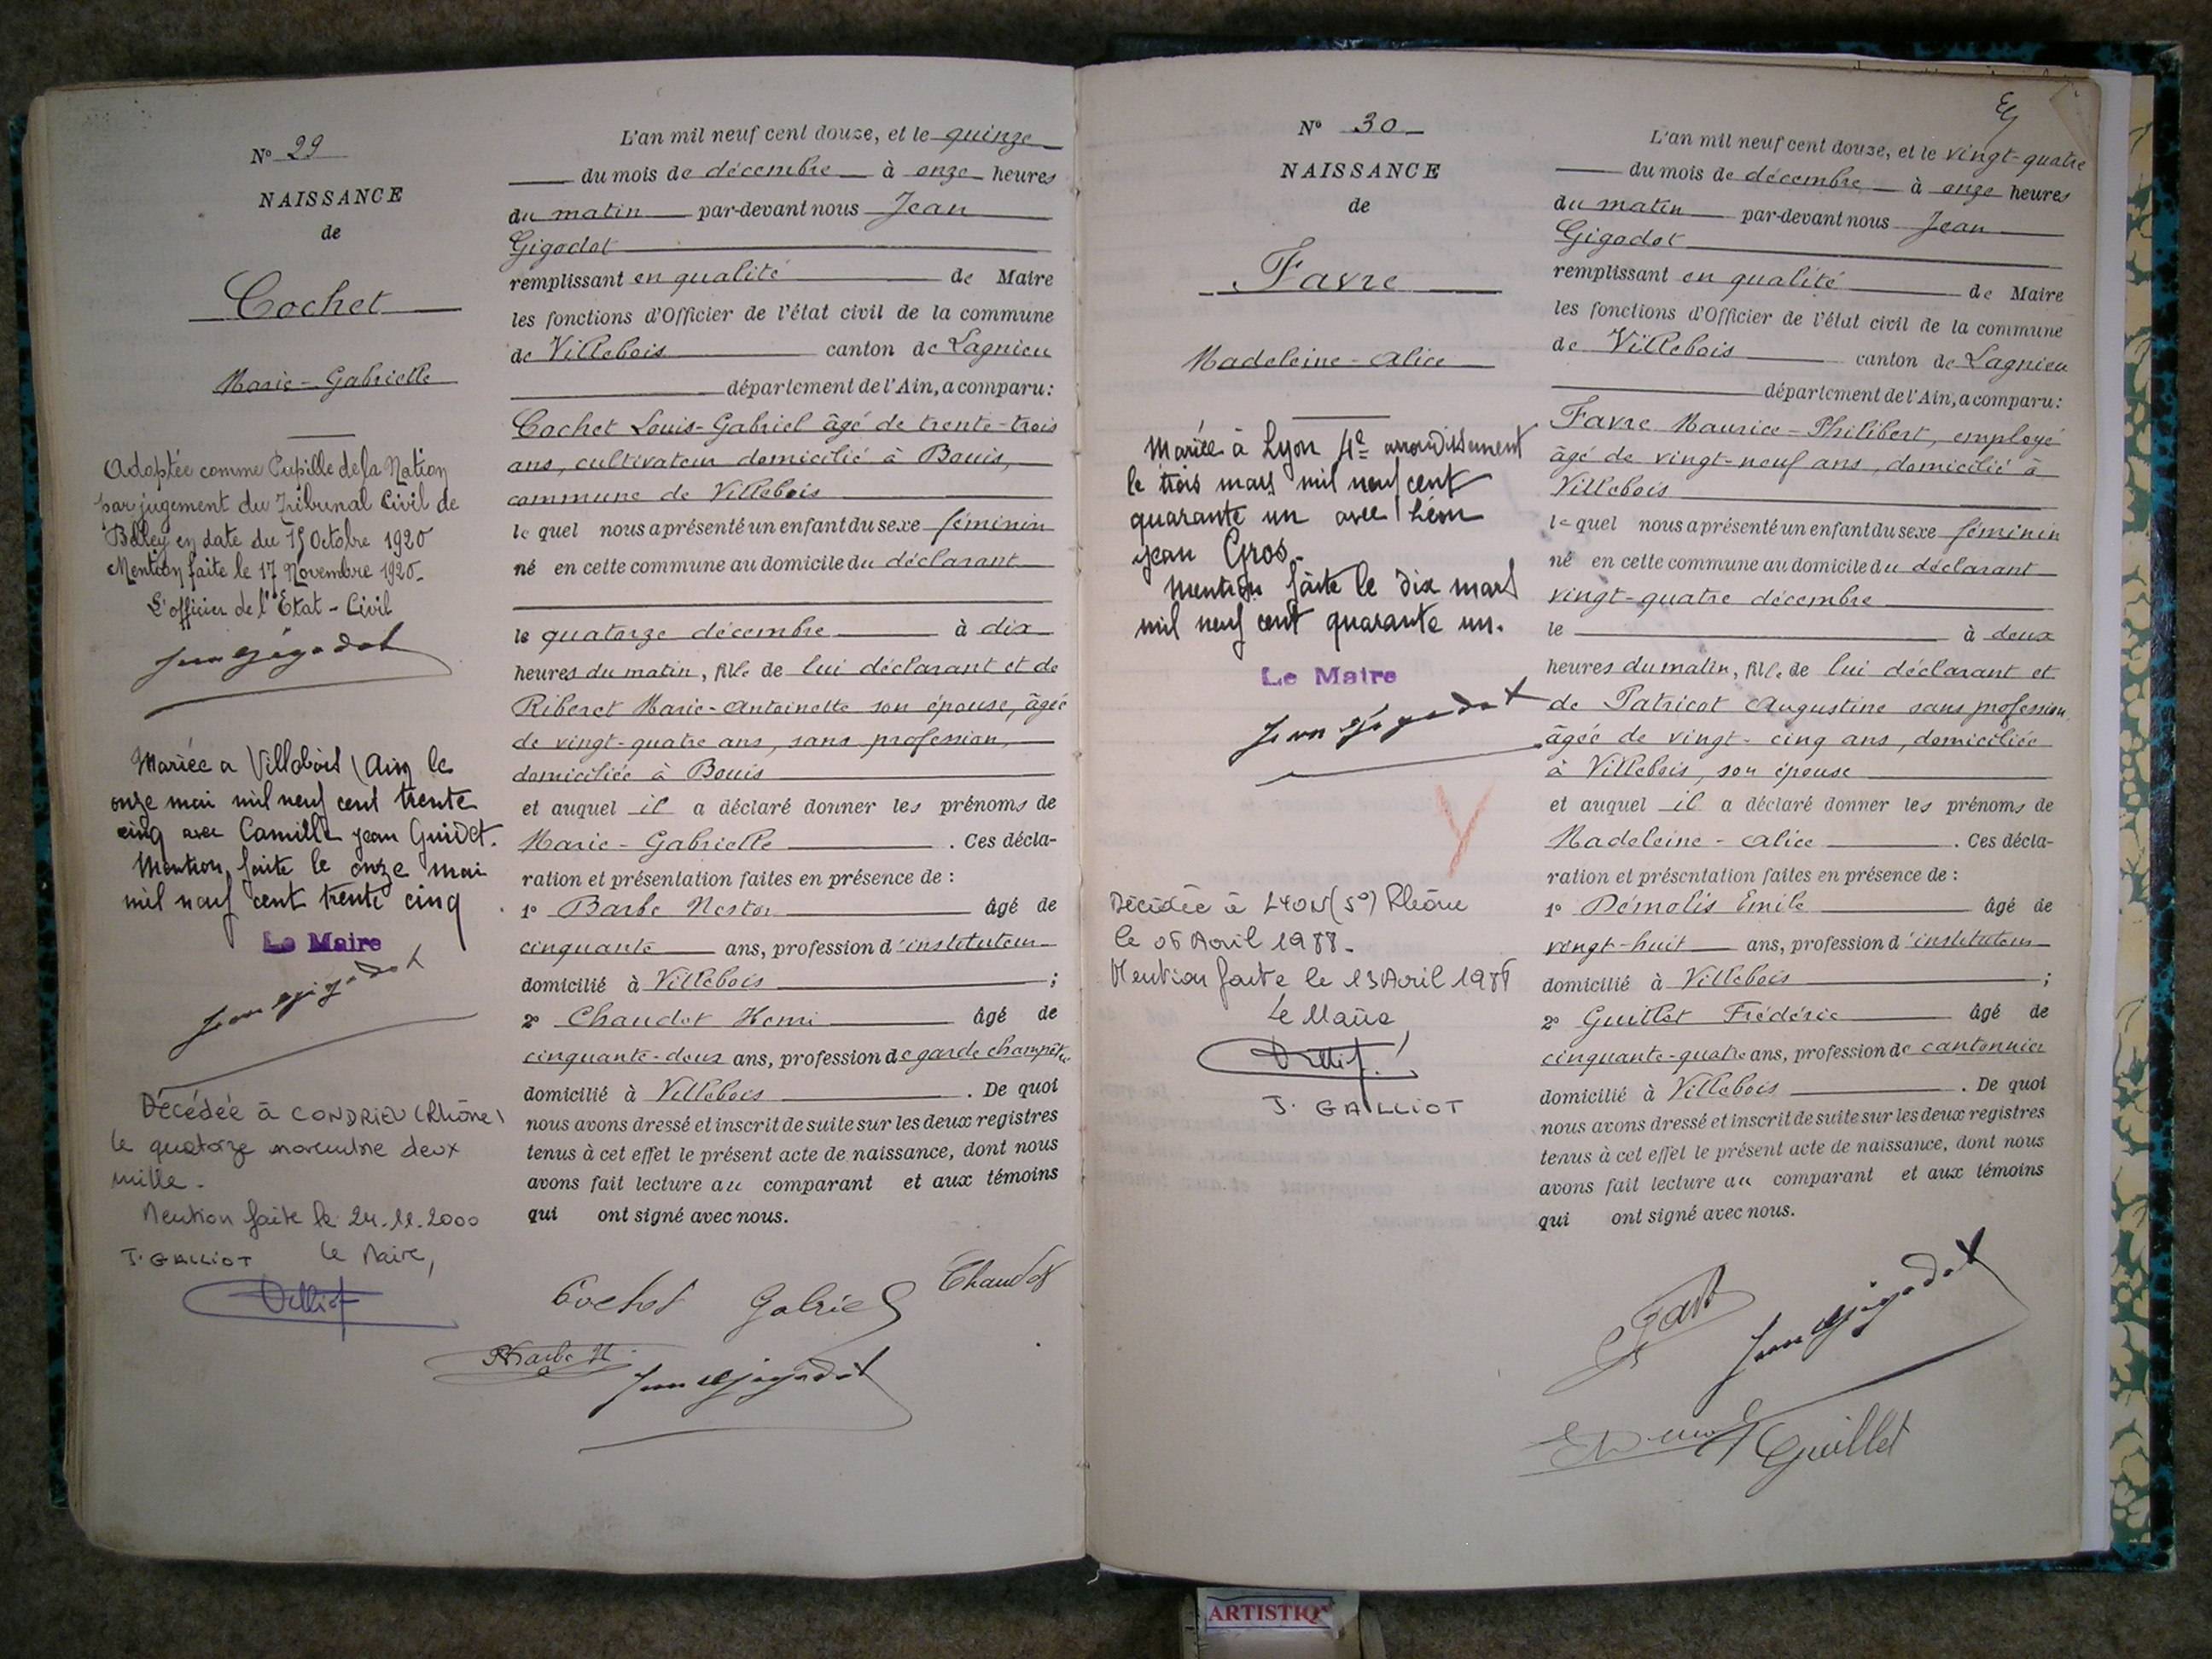 N° 29
NAISSANCE
de
Cochet
Marie-Gabrielle
Adoptée comme Pupille de la Nation
par jugement du Tribunal Civil de
Belley en date du 15 Octobre 1920
Mention faite le 17 Novembre 1920.
L'officier de l'Etat-Civil
Jean Gigodot
Mariée a Villebois (Ain) le
onze mai mil neuf cent trente
cinq avec Camille Jean Guidet.
Mention faite le onze mai
mil neuf cent trente cinq
Le Maire
Jean Gigodot
Décédée à CONDRIEU (Rhône)
le quatorze novembre deux
mille.
Mention faite le 24.11.2000
J. GALLIOT Le Maire,
L'an mil neuf cent douze, et le quinze
du mois de décembre à onze heures
du matin par-devant nous Jean
Gigodot
remplissant en qualité de Maire
les fonctions d'Officier de l'état civil de la commune
de Villebois canton de Lagnieu
département de l'Ain, a comparu:
Cochet Louis-Gabriel âgé de trente-trois
ans, cultivateur domicilié à Bouis,
commune de Villebois
le quel nous a présenté un enfant du sexe féminin
né en cette commune au domicile du déclarant
le quatorze décembre à dix
heures du matin, fille de lui déclarant et de
Riberet Marie-Antoinette son épouse, âgée
de vingt-quatre ans, sans profession,
domiciliée à Bouis
et auquel il a déclaré donner les prénoms de
Marie-Gabrielle. Ces décla-
ration et présentation faites en présence de :
1° Barbe Nestor âgé de
cinquante ans, profession d'instituteur
domicilié à Villebois ;
2° Chaudet Henri âgé de
cinquante-deux ans, profession de garde champêtre
domicilié à Villebois. De quoi
nous avons dressé et inscrit de suite sur les deux registres
tenus à cet effet le présent acte de naissance, dont nous
avons fait lecture au comparant et aux témoins
qui ont signé avec nous.
Cochet Gabriel Chaudet
Barbe N.
Jean Gigodot
N° 30
NAISSANCE
de
Favre
Madeleine-Alice
Mariée à Lyon 4e arrondissement
le trois mars mil neuf cent
quarante un avec Léon
Jean Gros.
Mention faite le dix mars
mil neuf cent quarante un.
Le Maire
Jean Gigodot
Décédée à LYON (5°) Rhône
le 06 Avril 1988.
Mention faite le 13 Avril 1988
Le Maire,
J. GALLIOT
L'an mil neuf cent douze, et le vingt-quatre
du mois de décembre à onze heures
du matin par-devant nous Jean
Gigodot
remplissant en qualité de Maire
les fonctions d'Officier de l'état civil de la commune
de Villebois canton de Lagnieu
département de l'Ain, a comparu:
Favre Maurice-Philibert, employé
âgé de vingt-neuf ans, domicilié à
Villebois
le quel nous a présenté un enfant du sexe féminin
né en cette commune au domicile du déclarant
vingt-quatre décembre
le à deux
heures du matin, fille de lui déclarant et
de Patricot Augustine sans profession,
âgée de vingt-cinq ans, domiciliée
à Villebois, son épouse
et auquel il a déclaré donner les prénoms de
Madeleine-Alice. Ces décla-
ration et présentation faites en présence de :
1° Démolis Emile âgé de
vingt-huit ans, profession d'instituteur
domicilié à Villebois ;
2° Guillet Frédéric âgé de
cinquante-quatre ans, profession de cantonnier
domicilié à Villebois. De quoi
nous avons dressé et inscrit de suite sur les deux registres
tenus à cet effet le présent acte de naissance, dont nous
avons fait lecture au comparant et aux témoins
qui ont signé avec nous.
Jean Gigodot
Guillet
ARTISTIQ